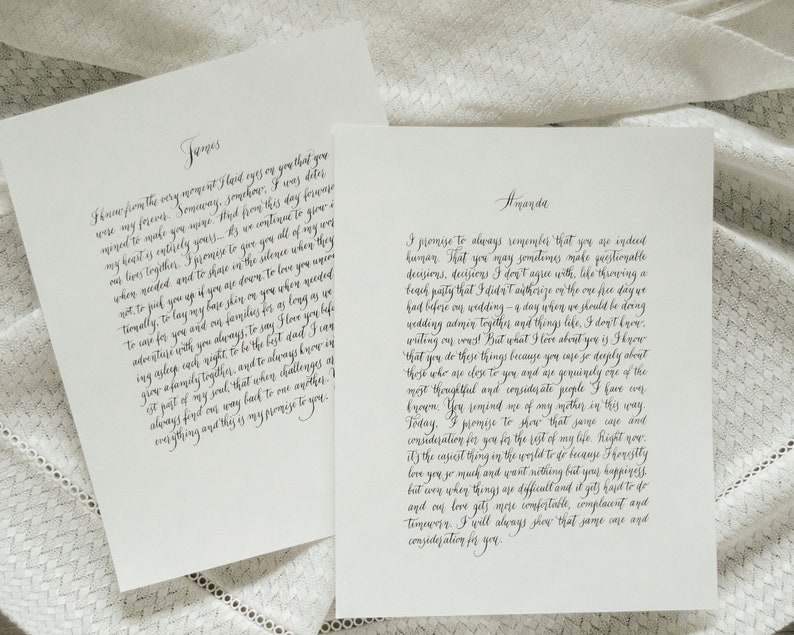 James
I knew from the very moment I laid eyes on you that you
were my forever. Someway, somehow, I was deter
mined to make you mine. And from this day forward
my heart is entirely yours... As we continue to grow i
our lives together. I promise to give you all of my wor
when needed, and to share in the silence when they
not, to pick you up if you are down, to love you uncon
tionally, to lay my bare skin on you when needed
to care for you and our families for as long as we
adventure with you always, to say I love you bef
ing asleep each night, to be the best dad I can
grow a family together, and to always know in
est part of my soul that when challenges ar
always find our way back to one another.
everything and this is my promise to you.
Amanda
I promise to always remember that you are indeed
human. That you may sometimes make questionable
decisions, decisions I don't agree with, like throwing a
beach party that I didn't authorize on the one free day we
had before our wedding—a day when we should be doing
wedding admin together and things like, I don't know,
writing our vows! But what I love about you is I know
that you do these things because you care so deeply about
those who are close to you and are genuinely one of the
most thoughtful and considerate people I have ever
known. You remind me of my mother in this way.
Today, I promise to show that same care and
consideration for you for the rest of my life. Right now,
it's the easiest thing in the world to do because I honestly
love you so much and want nothing but your happiness,
but even when things are difficult and it gets hard to do
and our love gets more comfortable, complacent and
timeworn. I will always show that same care and
consideration for you.